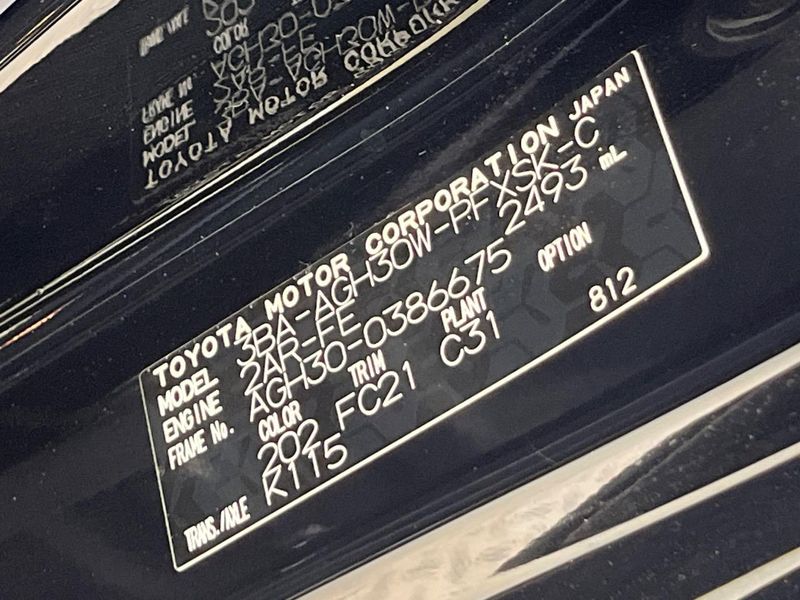 TOYOTA MOTOR CORPORATION JAPAN
MODEL 3BA-AGH30W-PFXSK-C
ENGINE 2AR-FE 2493 mL
FRAME No. AGH30-0386675
COLOR TRIM PLANT OPTION
202 FC21 C31 812
TRANS./AXLE K115